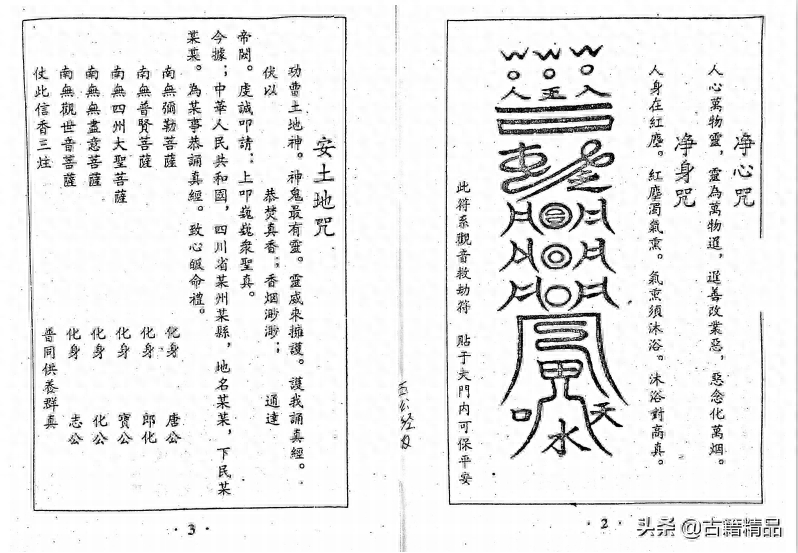 净心咒
人心萬物靈，靈為萬物遲，遲善改業惡，惡念化萬烟。
净身咒
人身在紅塵。紅塵濁氣熏。氣熏須沐浴。沐浴對高真。
口 水 天
此符系觀音救劫符　貼于大門內可保平安
·2·
安土地咒
功曹土地神。神鬼最有靈。靈威來擁護。護我誦真經。
伏以　恭焚真香；香烟渺渺；　通達
帝闕。虔誠叩請；上叩巍巍衆聖真。
今據；中華人民共和國，四川省某州某縣，地名某某，下民某
某某。為某事恭誦真經。致心皈命禮。
南無彌勒菩薩　化身　唐公
南無普賢菩薩　化身　郎化
南無四州大聖菩薩　化身　寶公
南無無盡意菩薩　化身　化公
南無觀世音菩薩　化身　志公
仗此信香三炷　普同供養群真
·3·
头条 @古籍精品